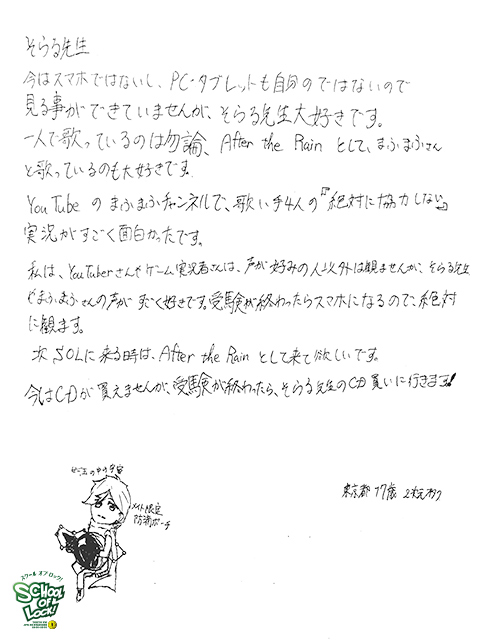 そらる先生
今はスマホではないし、PC・タブレットも自分のではないので
見る事ができていませんが、そらる先生大好きです。
一人で歌っているのは勿論、After the Rain として、まふまふさん
と歌っているのも大好きです。
YouTube のまふまふチャンネルで、歌い手4人の『絶対に協力しない』
実況がすごく面白かったです。
私は、YouTuberさんやゲーム実況者さんは、声が好みの人以外は観ませんが、そらる先生
やまふまふさんの声がすごく好きです。受験が終わったらスマホになるので、絶対
に観ます。
次 SOLに来る時は、After the Rain として来て欲しいです。
今はCDが買えませんが、受験が終わったら、そらる先生のCD買いに行きます!
の中の宇宙
メイト限定
防滴ポーチ
東京都 17歳
スクール オブ ロック!
SCHOOL
OF
LOCK!